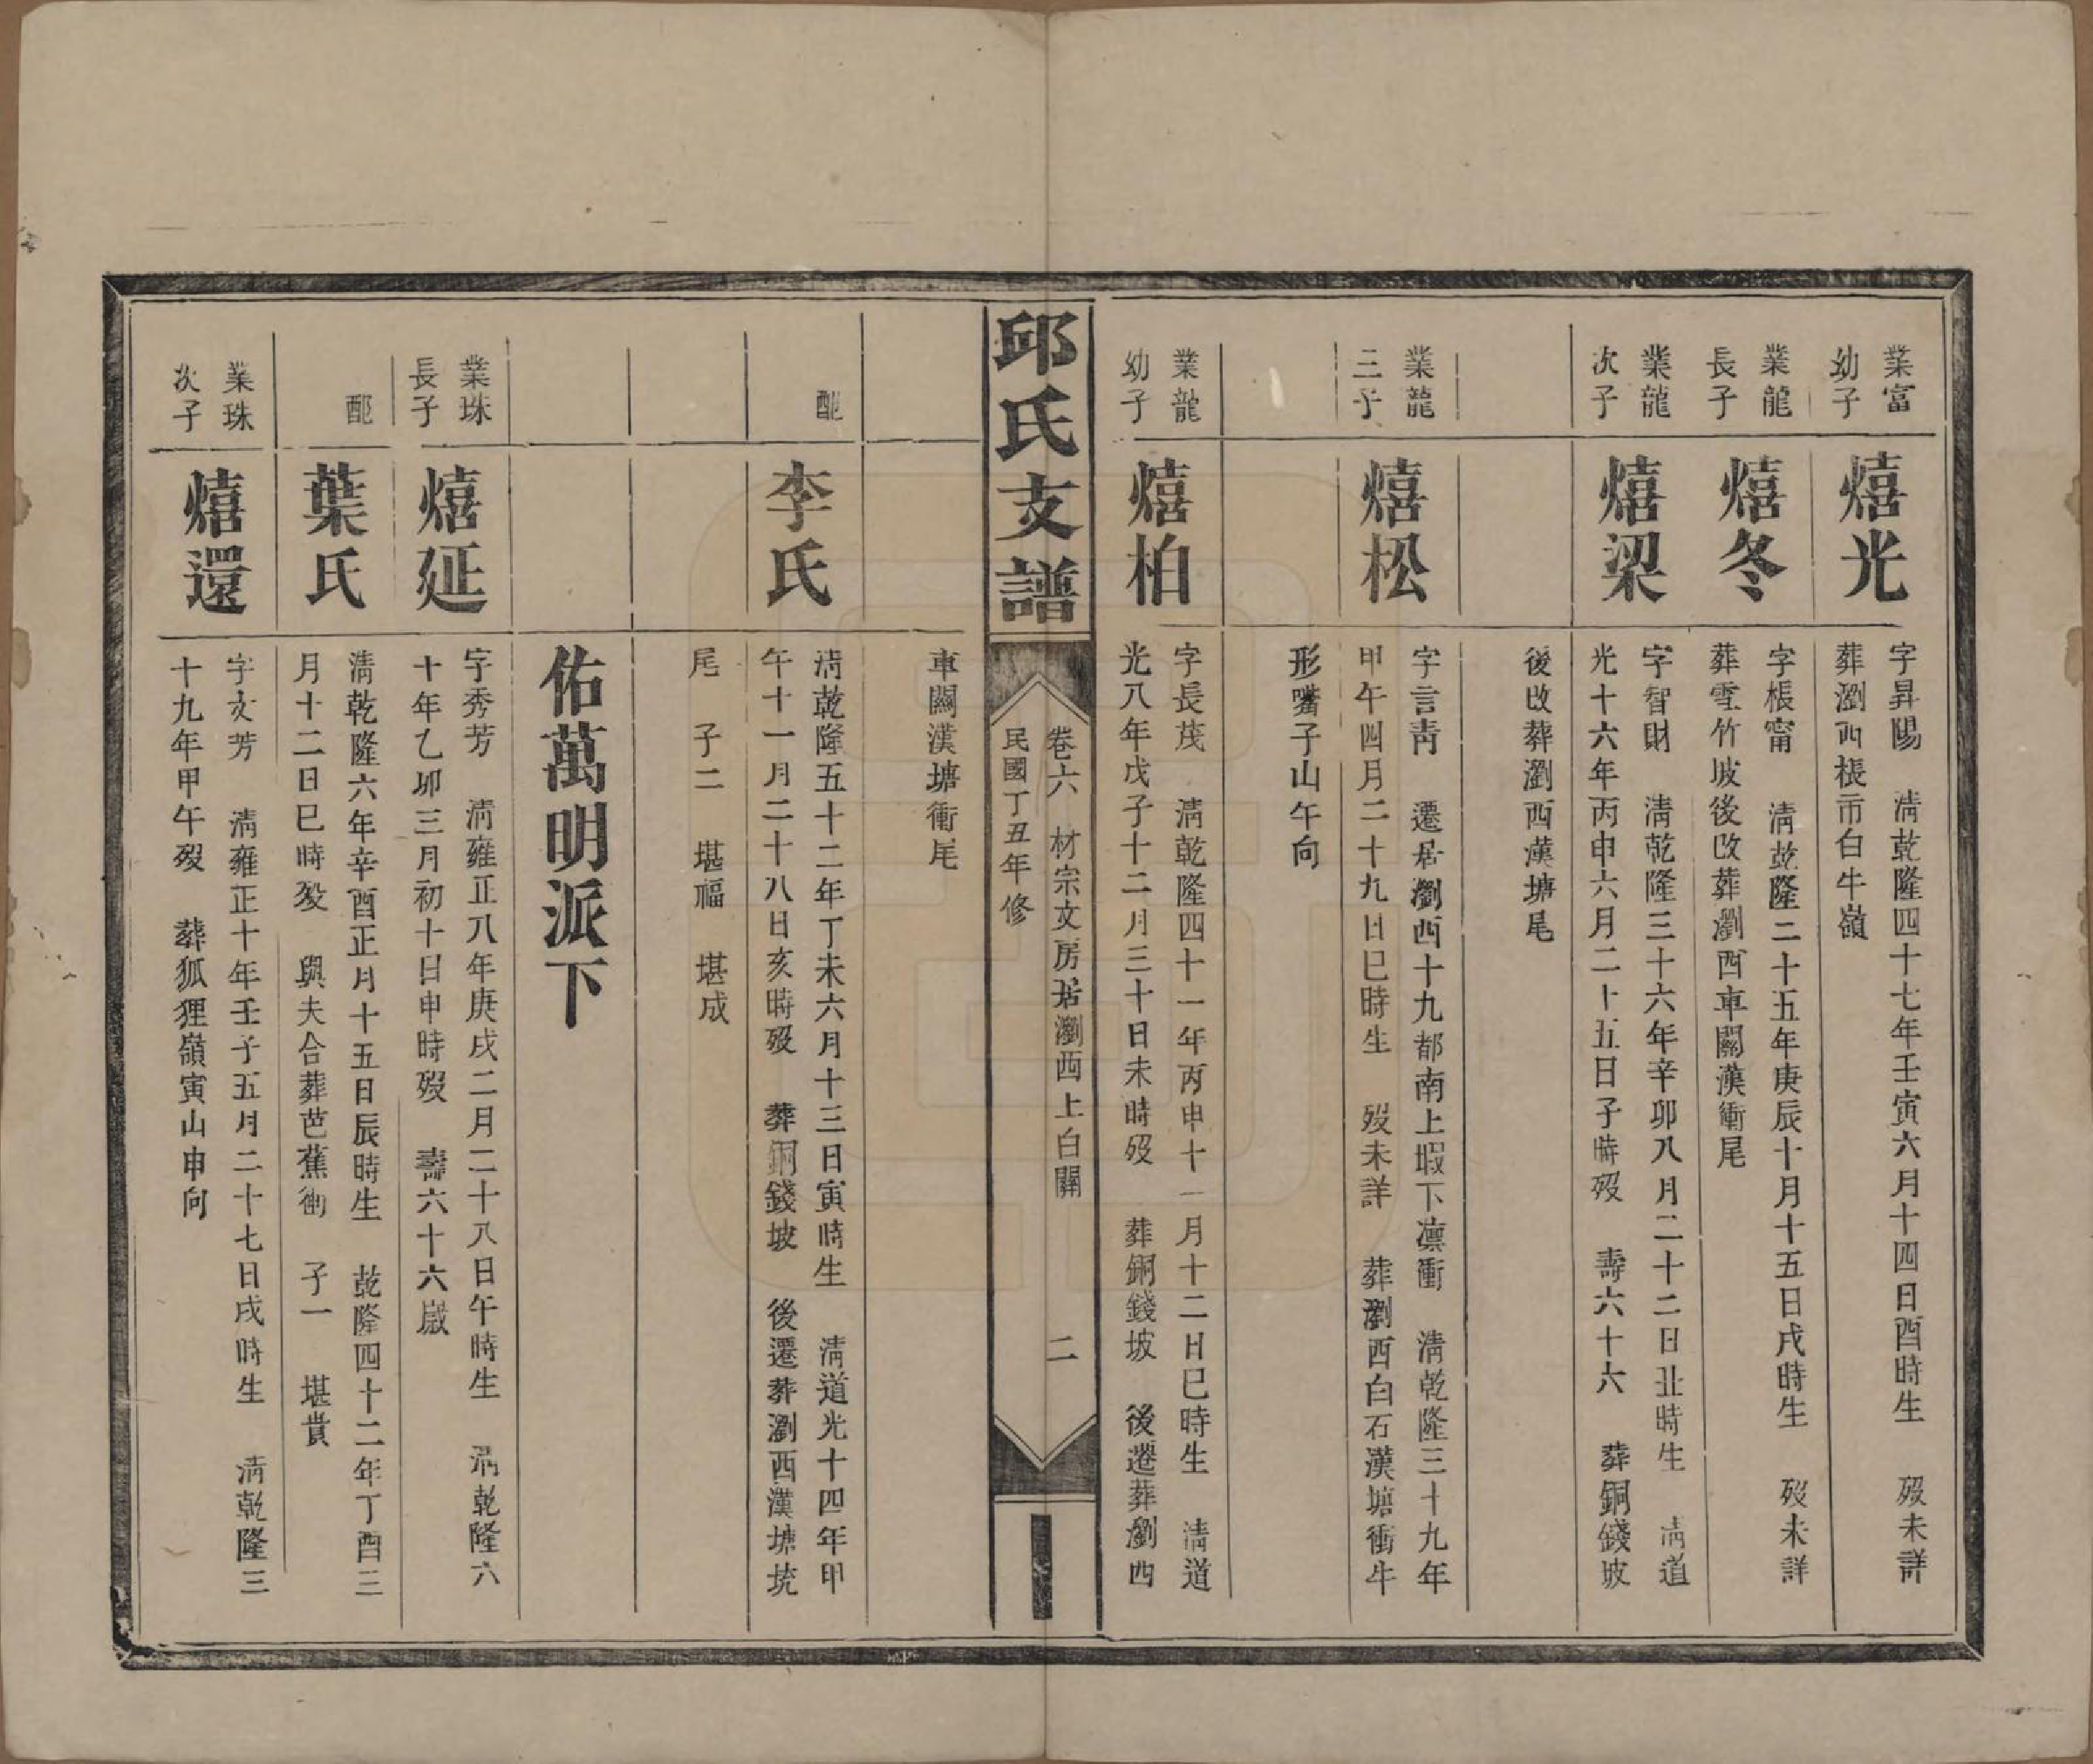 業富
幼子
熺光
字昇陽　清乾隆四十七年壬寅六月十四日酉時生　歿未詳
葬瀏西棖市白牛嶺
業龍
長子
熺冬
字棖甯　清乾隆二十五年庚辰十月十五日戌時生　歿未詳
葬雪竹坡後改葬瀏西車關漢衝尾
業龍
次子
熺梁
字智財　清乾隆三十六年辛卯八月二十二日丑時生　清道
光十六年丙申六月二十五日子時歿　壽六十六　葬銅錢坡
後改葬瀏西漢塘尾
業龍
三子
熺松
字言靑　遷居瀏西十九都南上塅下凛衝　清乾隆三十九年
甲午四月二十九日巳時生　歿未詳　葬瀏西白石漢塘衝牛
形嘴子山午向
業龍
幼子
熺柏
字長茂　清乾隆四十一年丙申十一月十二日巳時生　清道
光八年戊子十二月三十日未時歿　葬銅錢坡　後遷葬瀏西
邱氏支譜
卷六　材宗文房居瀏西上白關　二
民國丁丑年修
車關漢塘衝尾
配
李氏
清乾隆五十二年丁未六月十三日寅時生　清道光十四年甲
午十一月二十八日亥時歿　葬銅錢坡　後遷葬瀏西漢塘坑
尾　子二　堪福　堪成
佑萬明派下
業珠
長子
熺延
字秀芳　清雍正八年庚戌二月二十八日午時生　清乾隆六
十年乙卯三月初十日申時歿　壽六十六歲
配
葉氏
清乾隆六年辛酉正月十五日辰時生　乾隆四十二年丁酉三
月十二日巳時歿　與夫合葬芭蕉衝　子一　堪貴
業珠
次子
熺還
字文芳　清雍正十年壬子五月二十七日戌時生　清乾隆三
十九年甲午歿　葬狐狸嶺寅山申向